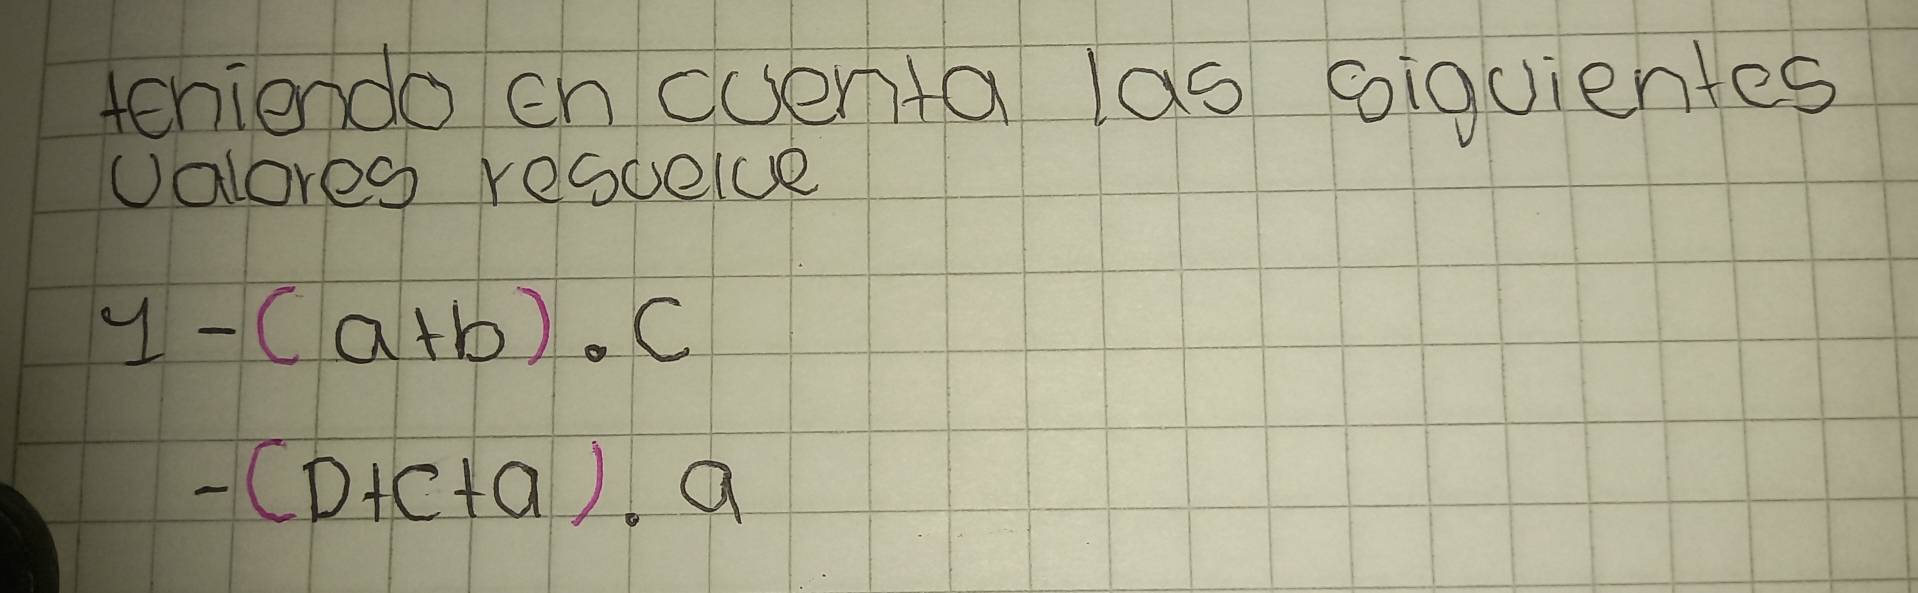 teniendo en cuenta las siguientes
valores resuelve
1 - (a+b) . C
- (D+C+a) . a